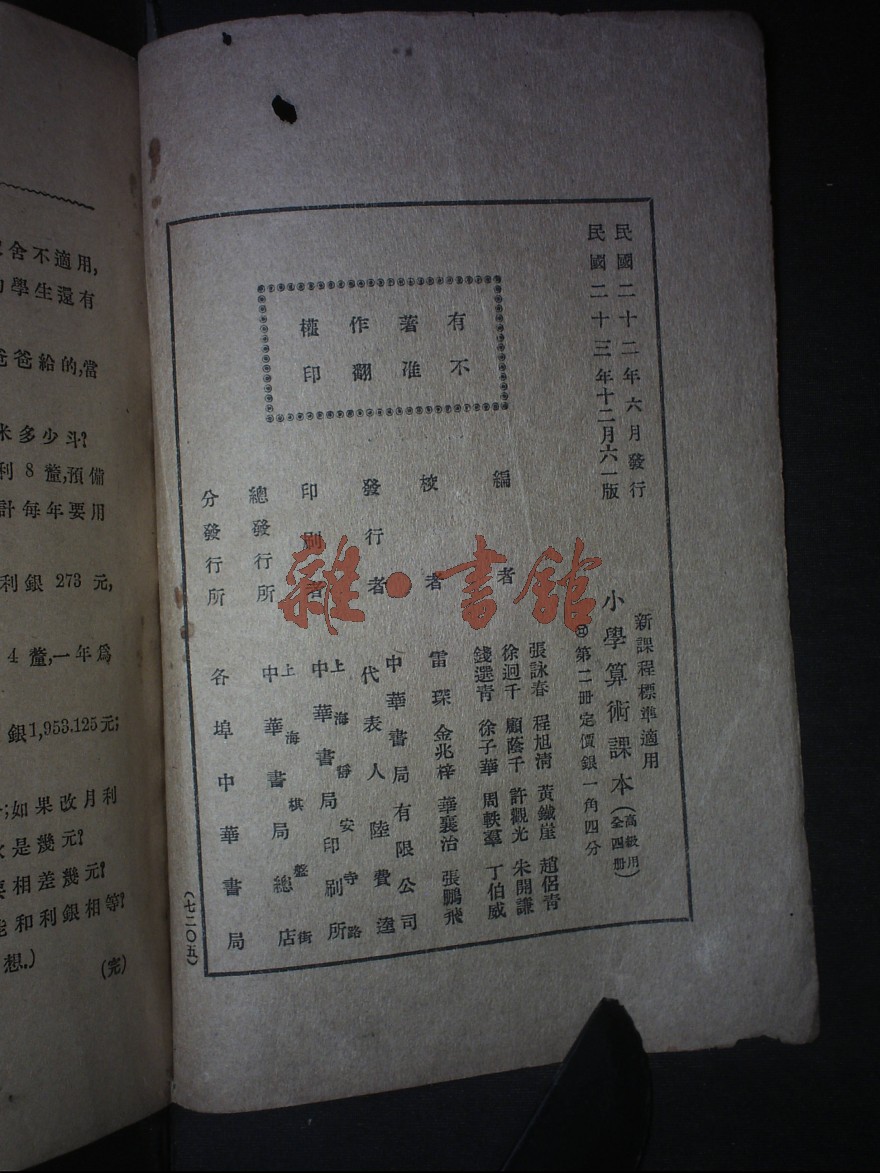 民國二十二年六月發行
民國二十三年十二月六一版
新課程標準適用
小學算術課本（高級用 全四冊）
第二冊定價銀一角四分
有著作權
不准翻印
編者
張詠春 程旭清 黃鐵崖 趙侶青
徐迥千 顧蔭千 許觀光 朱開謙
錢選青 徐子華 周軼羣 丁伯威
校者
雷琛 金兆梓 華襄治 張鵬飛
發行者
中華書局有限公司
代表人 陸費逵
印刷者
上海靜安寺路
中華書局印刷所
總發行所
上海棋盤街
中華書局總店
分發行所
各埠中華書局
(七二〇五)
雜·書館
舍不適用,
學生還有
爸爸給的,當
米多少斗?
利 8 釐,預備
計每年要用
利銀 273 元,
4 釐,一年爲
銀1,953.125元;
;如果改月利
是幾元?
相差幾元?
能和利銀相等?
想.)
(完)